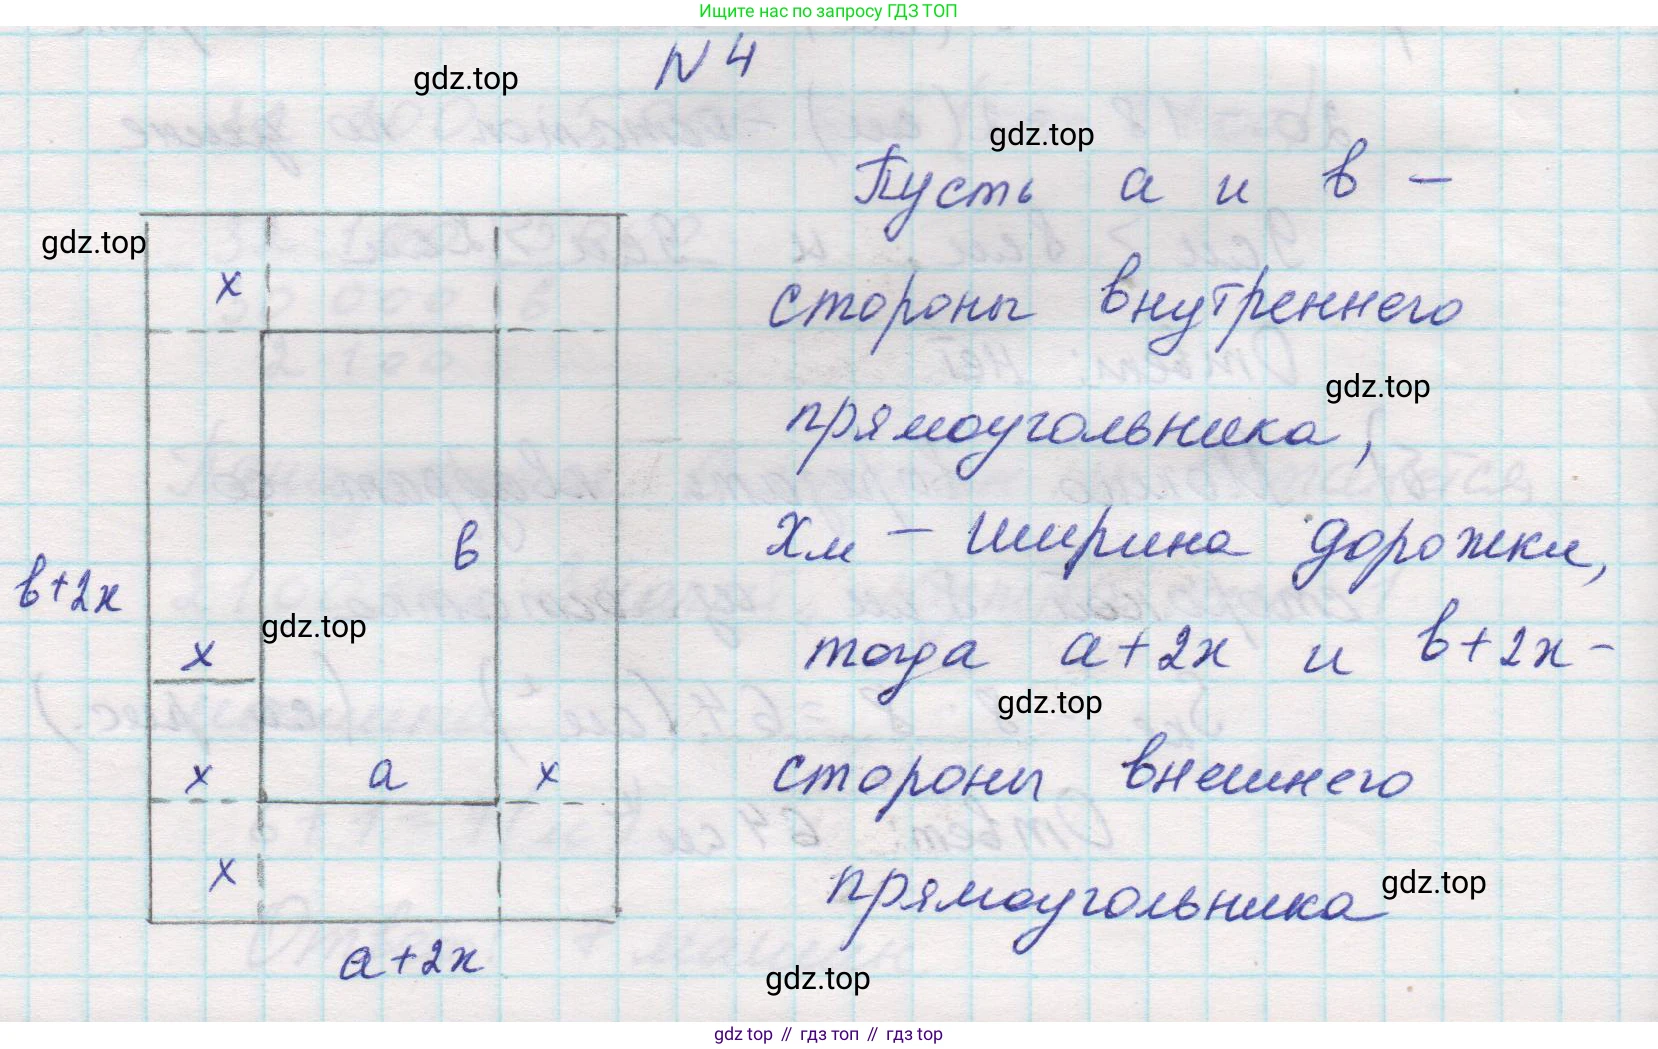 Ищите нас по запросу ГДЗ ТОП
N 4
gdz.top
gdz.top
Пусть a и в –
gdz.top
x
стороны внутреннего
gdz.top
прямоугольника,
в
xм – ширина дорожки,
в+2x
gdz.top
x
тогда a+2x и в+2x –
gdz.top
x
a
x
стороны внешнего
x
gdz.top
прямоугольника
a+2x
gdz.top
gdz top // гдз топ // гдз top